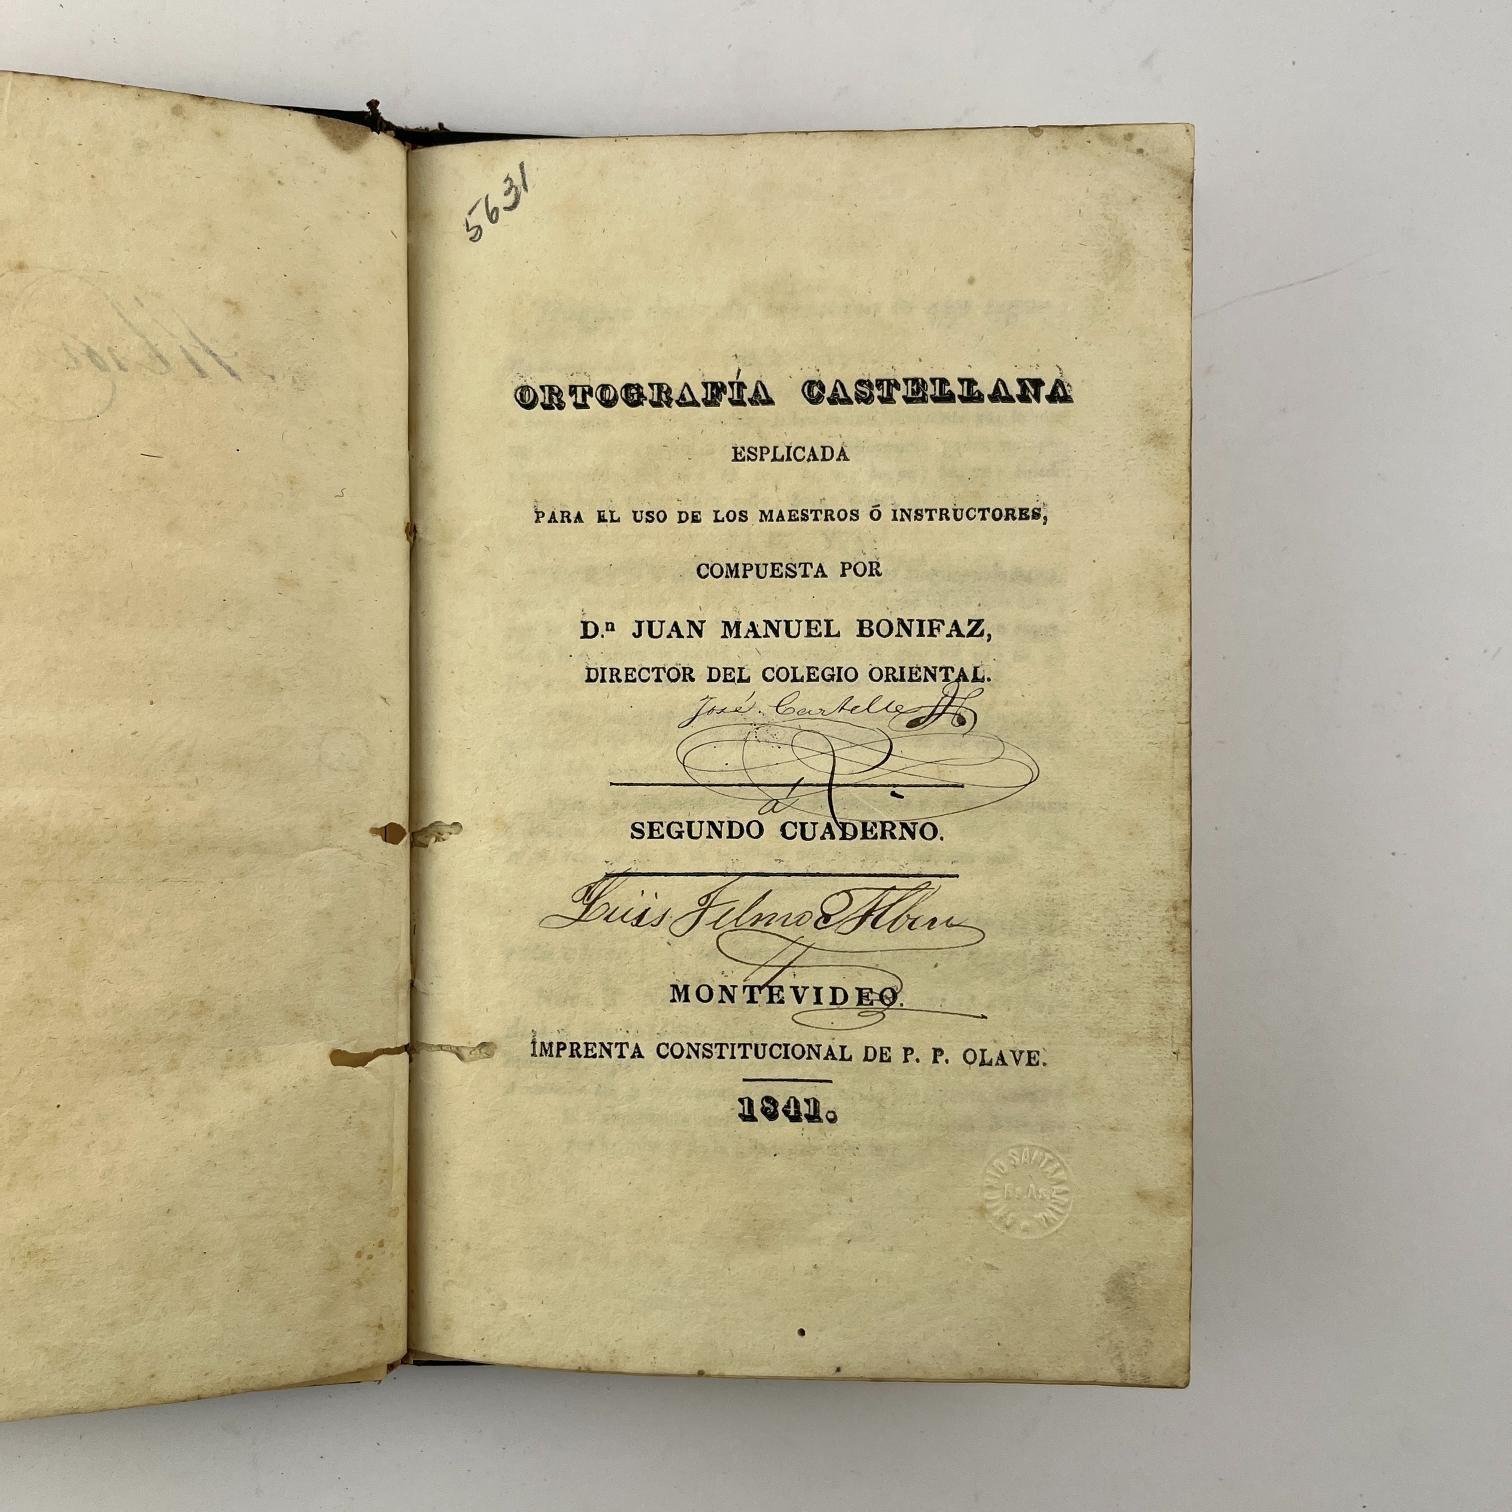 5631
ORTOGRAFÍA CASTELLANA
ESPLICADA
PARA EL USO DE LOS MAESTROS Ó INSTRUCTORES,
COMPUESTA POR
D.ⁿ JUAN MANUEL BONIFAZ,
DIRECTOR DEL COLEGIO ORIENTAL.
José
á
SEGUNDO CUADERNO.
Luis Telmo
MONTEVIDEO.
IMPRENTA CONSTITUCIONAL DE P. P. OLAVE.
1841.
SANTAMARINA
Bs. As.